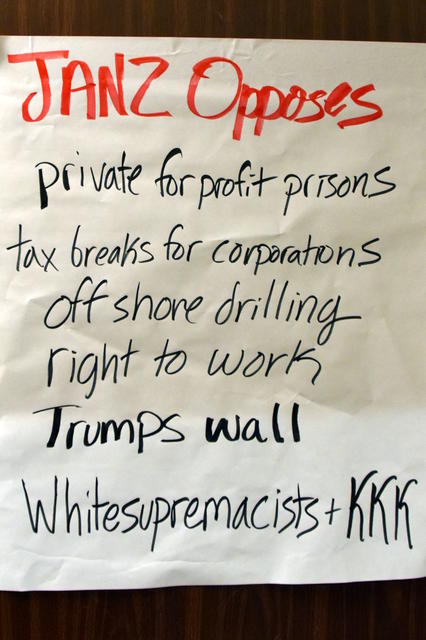 JANZ Opposes
private for profit prisons
tax breaks for corporations
off shore drilling
right to work
Trumps wall
Whitesupremacists + KKK